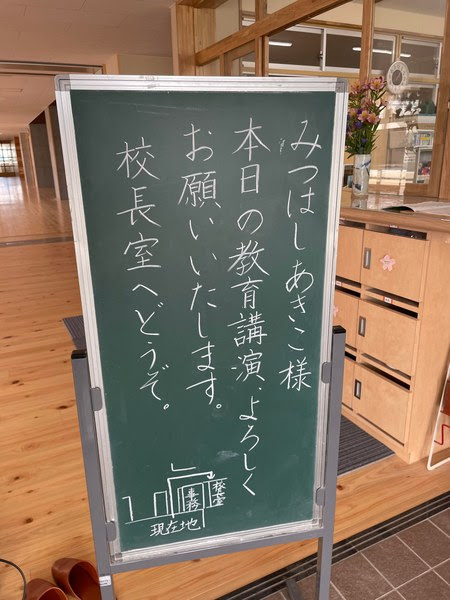 みつはしあきこ様
本日の教育講演、よろしく
お願いいたします。
校長室へどうぞ。
事務
校長室
現在地